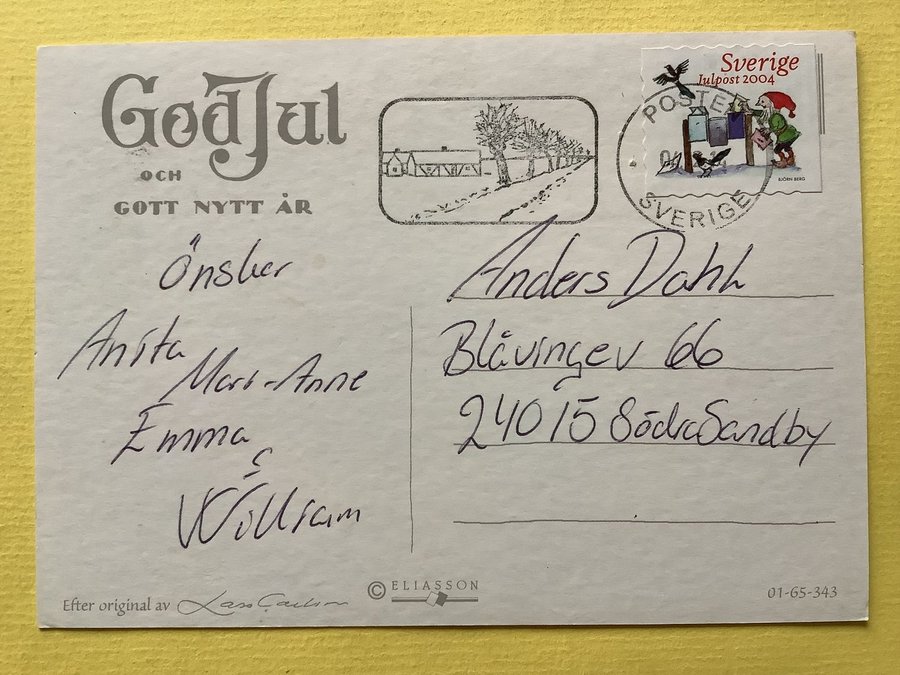 God Jul
OCH
GOTT NYTT ÅR
Önsker
Anita
Mari-Anne
Emma
&
William
Sverige
Julpost 2004
BJÖRN BERG
POSTEN
SVERIGE
Anders Dahl
Blåvingev 66
240 15 Södra Sandby
Efter original av
© ELIASSON
01-65-343